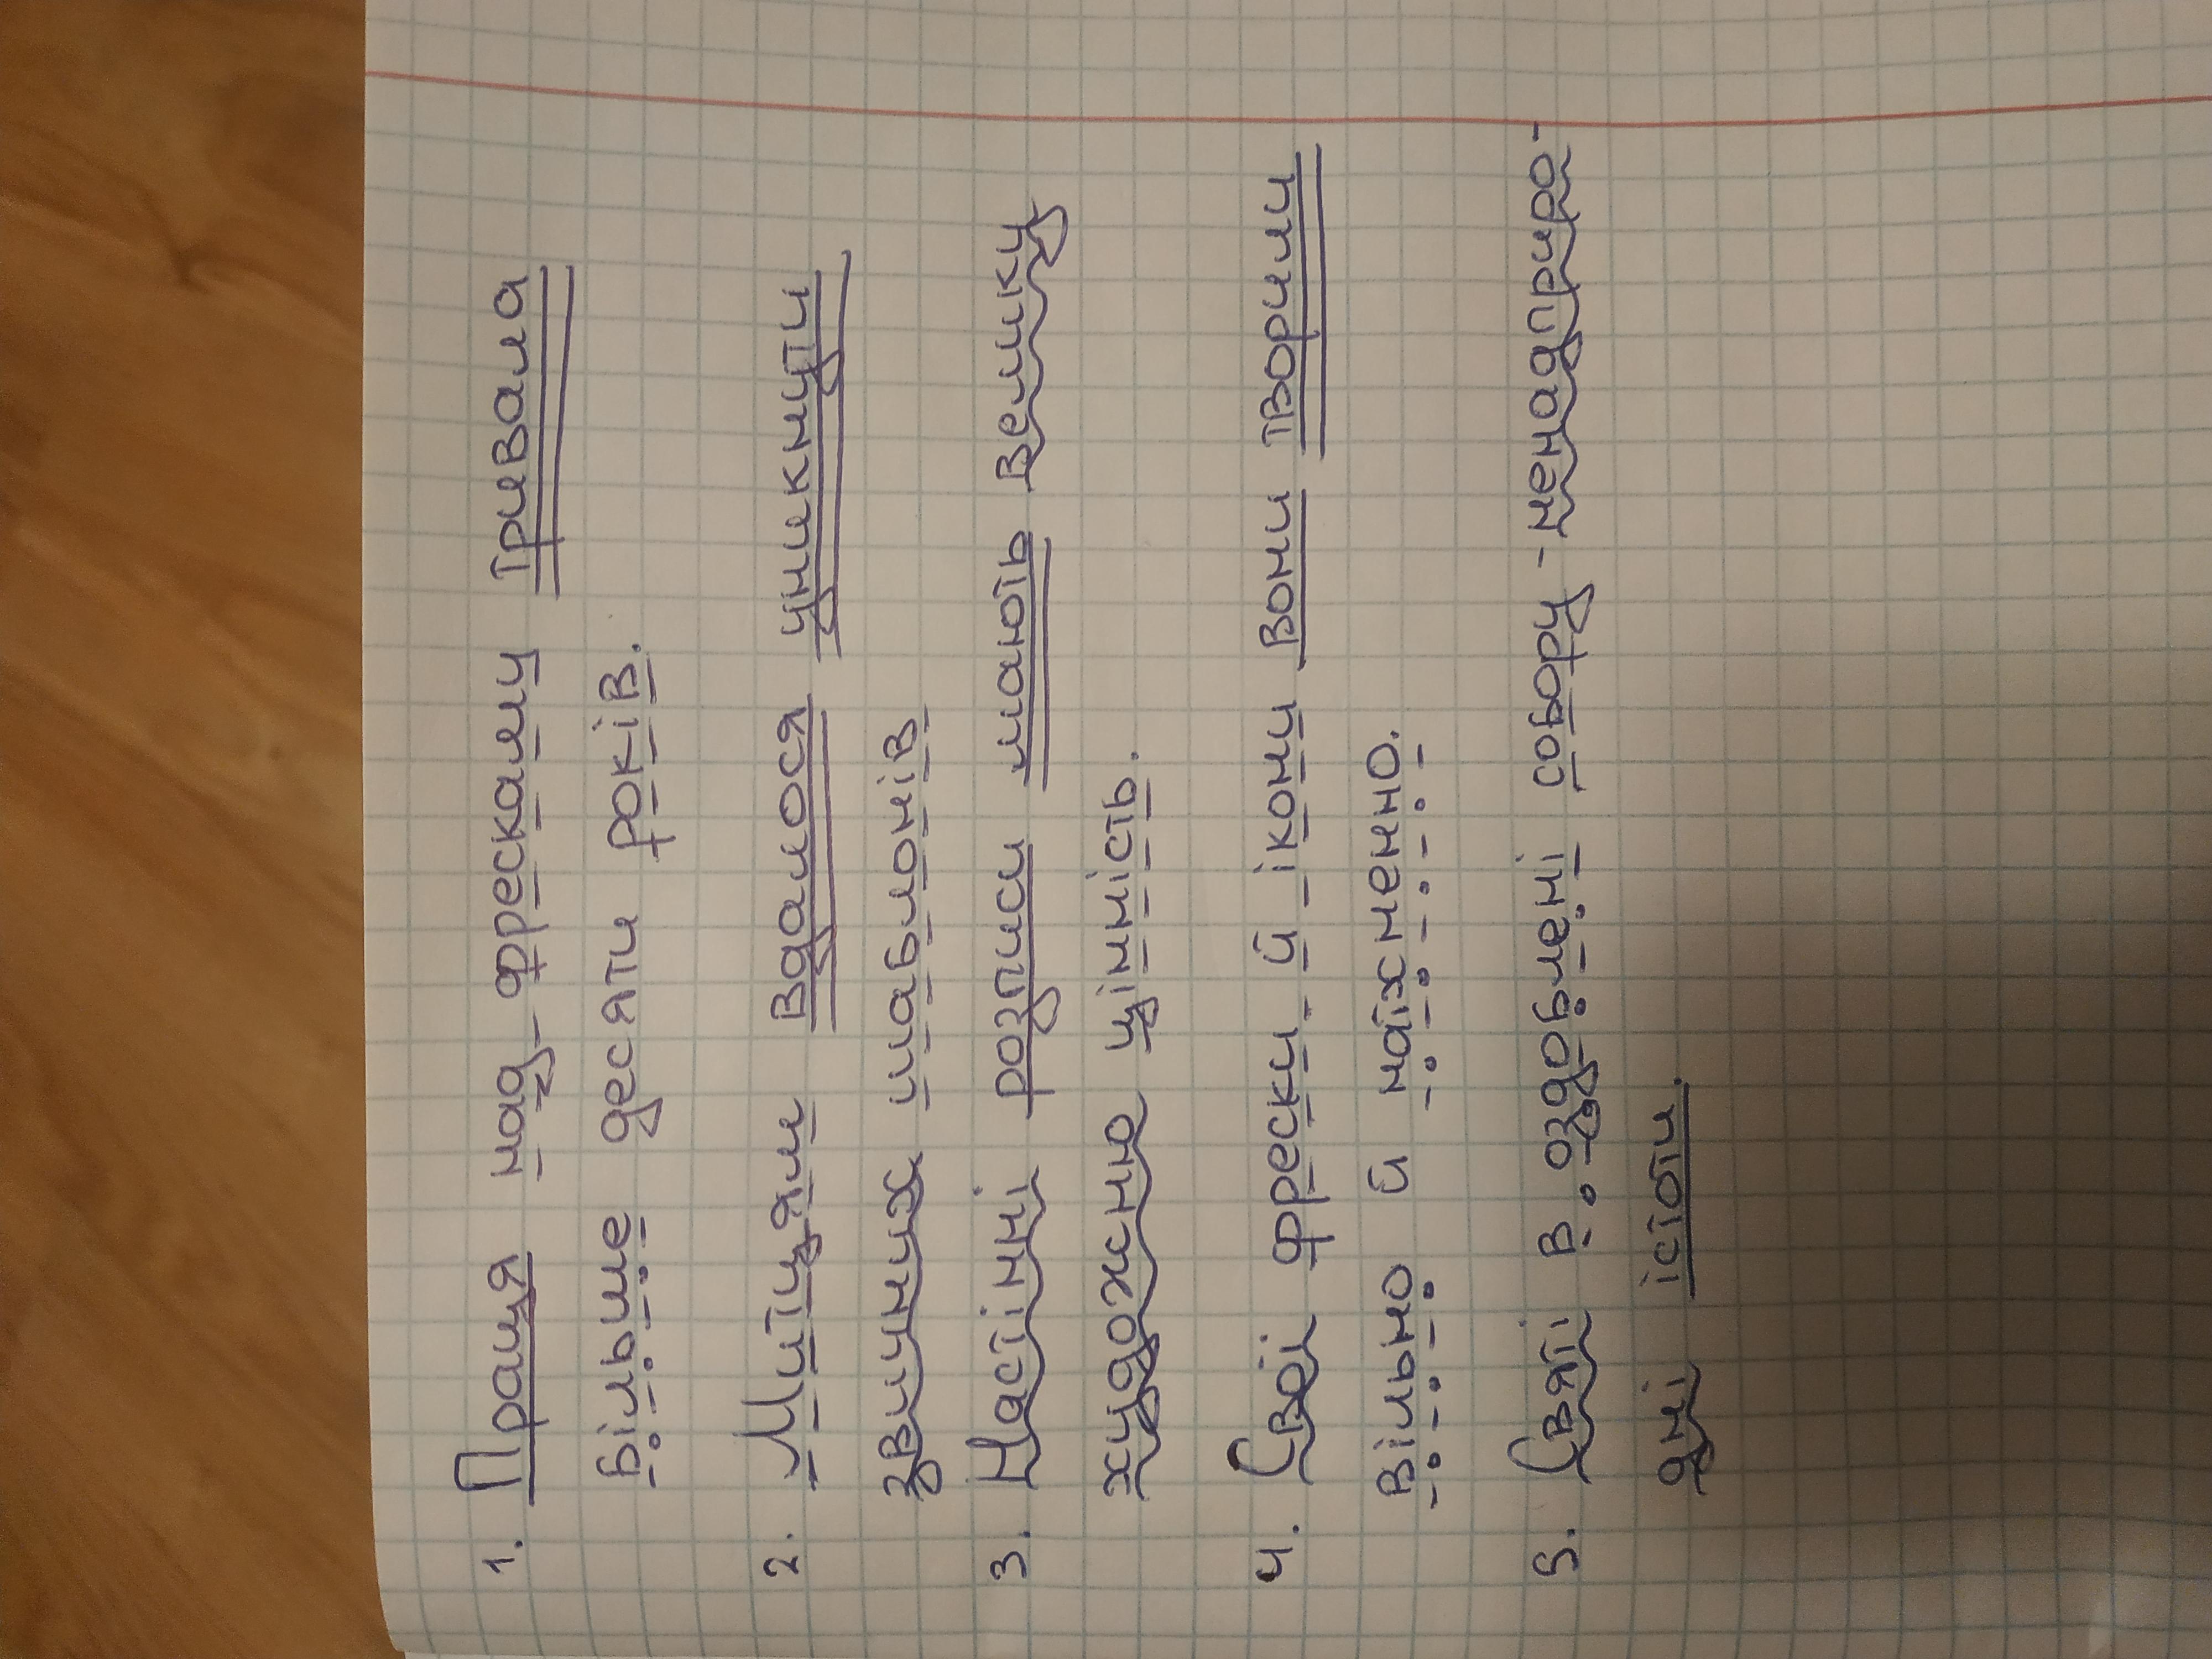 1. Праця над фресками тривала
більше десяти років.
2. Митцям вдалося уникнути
звичних шаблонів
3. Настінні розписи мають велику
художню цінність.
4. Свої фрески й ікони вони творили
вільно й натхненно.
5. Святі в оздобленні собору - ненадприро-
дні істоти.